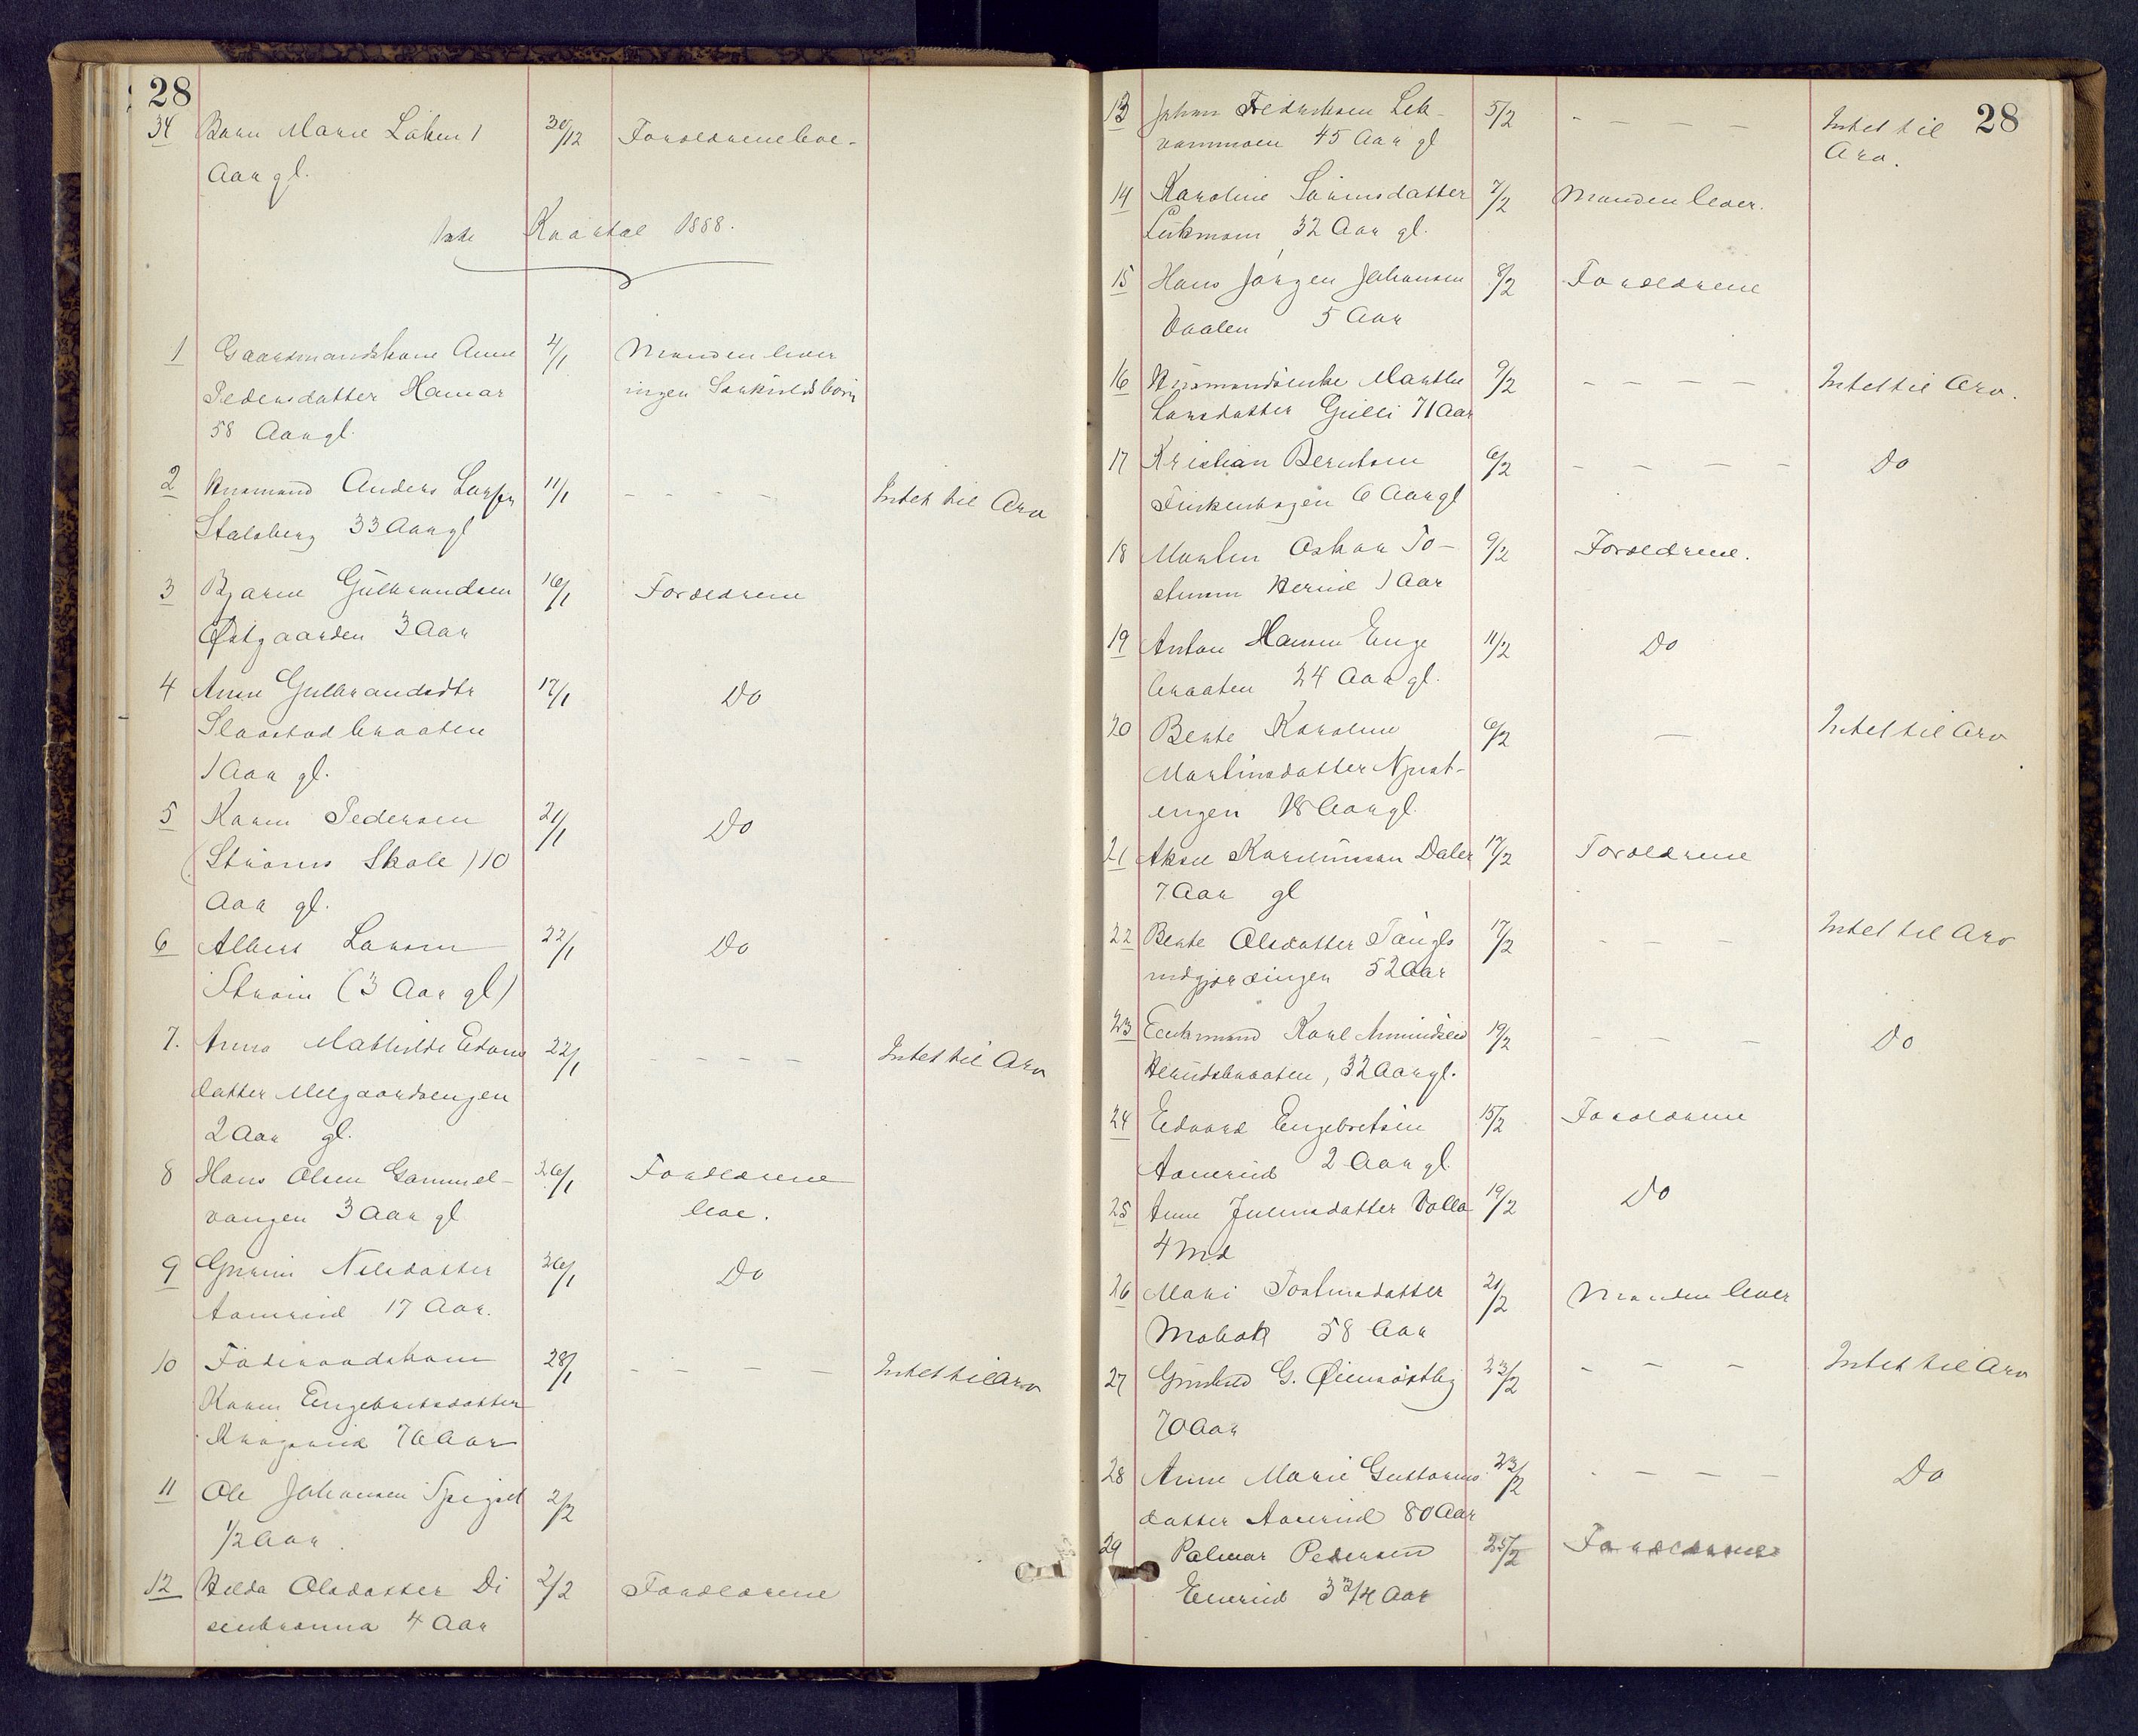 28
34 Barn Marie Løken 1 30/12 Forældrene leve.
Aar gl.
1ste Kvartal 1888.
1 Gaardmandskone Anne 4/1 Manden lever
Pedersdatter Hamar ingen Særkuldsbørn
58 Aar gl.
2 Husmand Anders Larsen 11/1 - - - - Intet til Arv
Stalsberg 33 Aar gl
3 Bjarne Gulbrandsen 16/1 Forældrene
Østgaarden 3 Aar
4 Anne Gulbrandsdtr 17/1 Do
Slaastadbraaten
1 Aar gl.
5 Karen Pedersen 21/1 Do
(Strøms Skole) 10
Aar gl.
6 Albert Larsen 22/1 Do
Strøm (3 Aar gl)
7. Anna Mathilde Edvards 22/1 - - - - Intet til Arv
datter Melgaardsengen
2 Aar gl.
8 Hans Olsen Gammel- 26/1 Forældrene
vangen 3 Aar gl leve.
9 Gurine Nilsdatter 26/1 Do
Aamerud 17 Aar.
10 28/1 - - - - Intet til Arv
Karen Engebretsdatter
76 Aar
11 Ole Johansen 2/2
1/2 Aar.
12 Hilda Olsdatter Di 2/2 Forældrene
senbraana 4 Aar
28
13 Johan Fredriksen Lek- 5/2 - - - - Intet til
vammoen 45 Aar gl Arv.
14 Karoline Sørensdatter 7/2 Manden lever.
32 Aar gl.
15 Hans Jørgen Johansen 8/2 Forældrene
Vaalen 5 Aar
16 Husmandsenke Marthe 9/2 - - - - Intet til Arv.
Larsdatter Gulli 71 Aar
17 Kristian Berntsen 6/2 - - - - Do
Finkenhagen 6 Aar gl
18 Martin Oskar To- 9/2 Forældrene.
stensen Herud 1 Aar
19 Anton Hansen Enge 11/2 Do
braaten 24 Aar gl.
20 Berte Karoline 6/2 — Intet til Arv
Martinsdatter
engen 18 Aar gl.
21 Aksel Kareliussen Daler 17/2 Forældrene
7 Aar gl
22 Berte Olsdatter Tangls 17/2 - - - Intet til Arv
rudgjordingen 52 Aar
23 Karl Amundsen 19/2 - - - Do
Herudsbraaten, 32 Aar gl.
24 Edvard Engebretsen 15/2 Forældrene
Aamerud 2 Aar gl.
25 Anne Juliusdatter Volla 19/2 Do
4 Md
26 Mari Torstensdatter 21/2 Manden lever
Mobak 58 Aar
27 G. 23/2 - - - Intet til Arv
70 Aar
28 Anne Marie Gustavus 23/2 - - - - Do
datter Aamerud 80 Aar
29 Palmar Pedersen 25/2 Forældrene
3 3/4 Aar